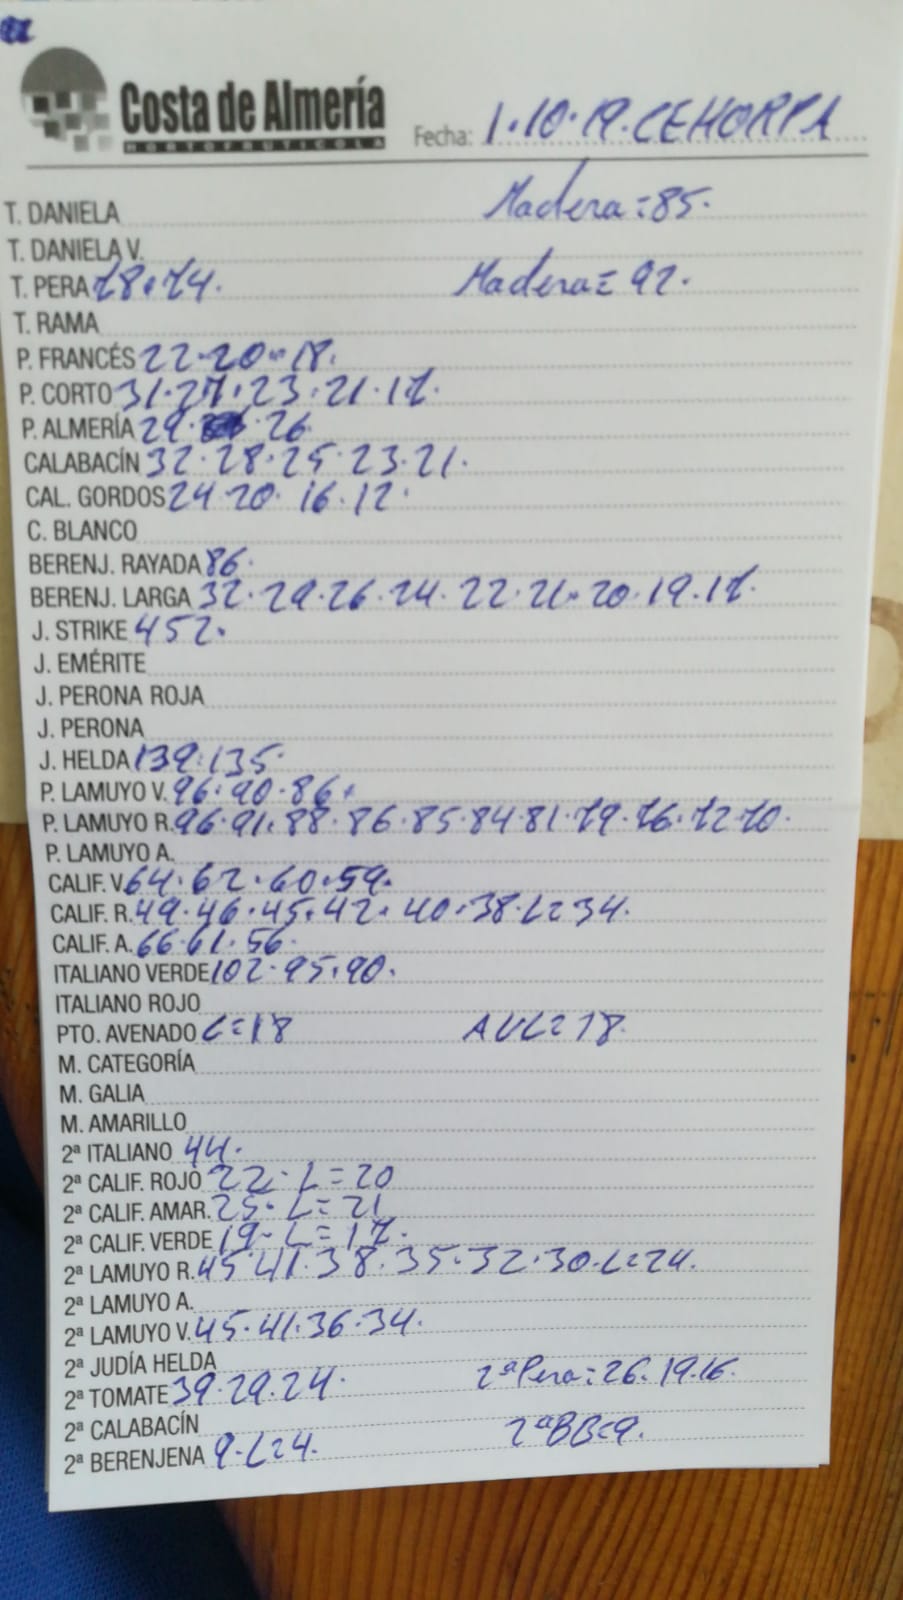 Costa de Almería
HORTOFRUTICOLA
Fecha: 1.10.19. CEHORPA
T. DANIELA Madera=85.
T. DANIELA V.
T. PERA 78.74. Madera=92.
T. RAMA
P. FRANCÉS 22.20.18.
P. CORTO 31.27.23.21.17.
P. ALMERÍA 29. 26.
CALABACÍN 32.28.25.23.21.
CAL. GORDOS 24.20.16.12.
C. BLANCO
BERENJ. RAYADA 86.
BERENJ. LARGA 32.29.26.24.22.21.20.19.17.
J. STRIKE 452.
J. EMÉRITE
J. PERONA ROJA
J. PERONA
J. HELDA 139.135.
P. LAMUYO V. 96.90.86.
P. LAMUYO R. 96.91.88.86.85.84.81.79.76.72.70.
P. LAMUYO A.
CALIF. V. 64.62.60.59.
CALIF. R. 49.46.45.42.40.38.L=34.
CALIF. A. 66.61.56.
ITALIANO VERDE 102.95.90.
ITALIANO ROJO
PTO. AVENADO L=18 AVL=18.
M. CATEGORÍA
M. GALIA
M. AMARILLO
2ª ITALIANO 44.
2ª CALIF. ROJO 22. L=20
2ª CALIF. AMAR. 25. L=21
2ª CALIF. VERDE 19. L=17.
2ª LAMUYO R. 45.41.38.35.32.30.L=24.
2ª LAMUYO A.
2ª LAMUYO V. 45.41.36.34.
2ª JUDÍA HELDA
2ª TOMATE 39.29.24. 2ªPera=26.19.16.
2ª CALABACÍN
2ª BERENJENA 9.L=4. 2ªBB=9.